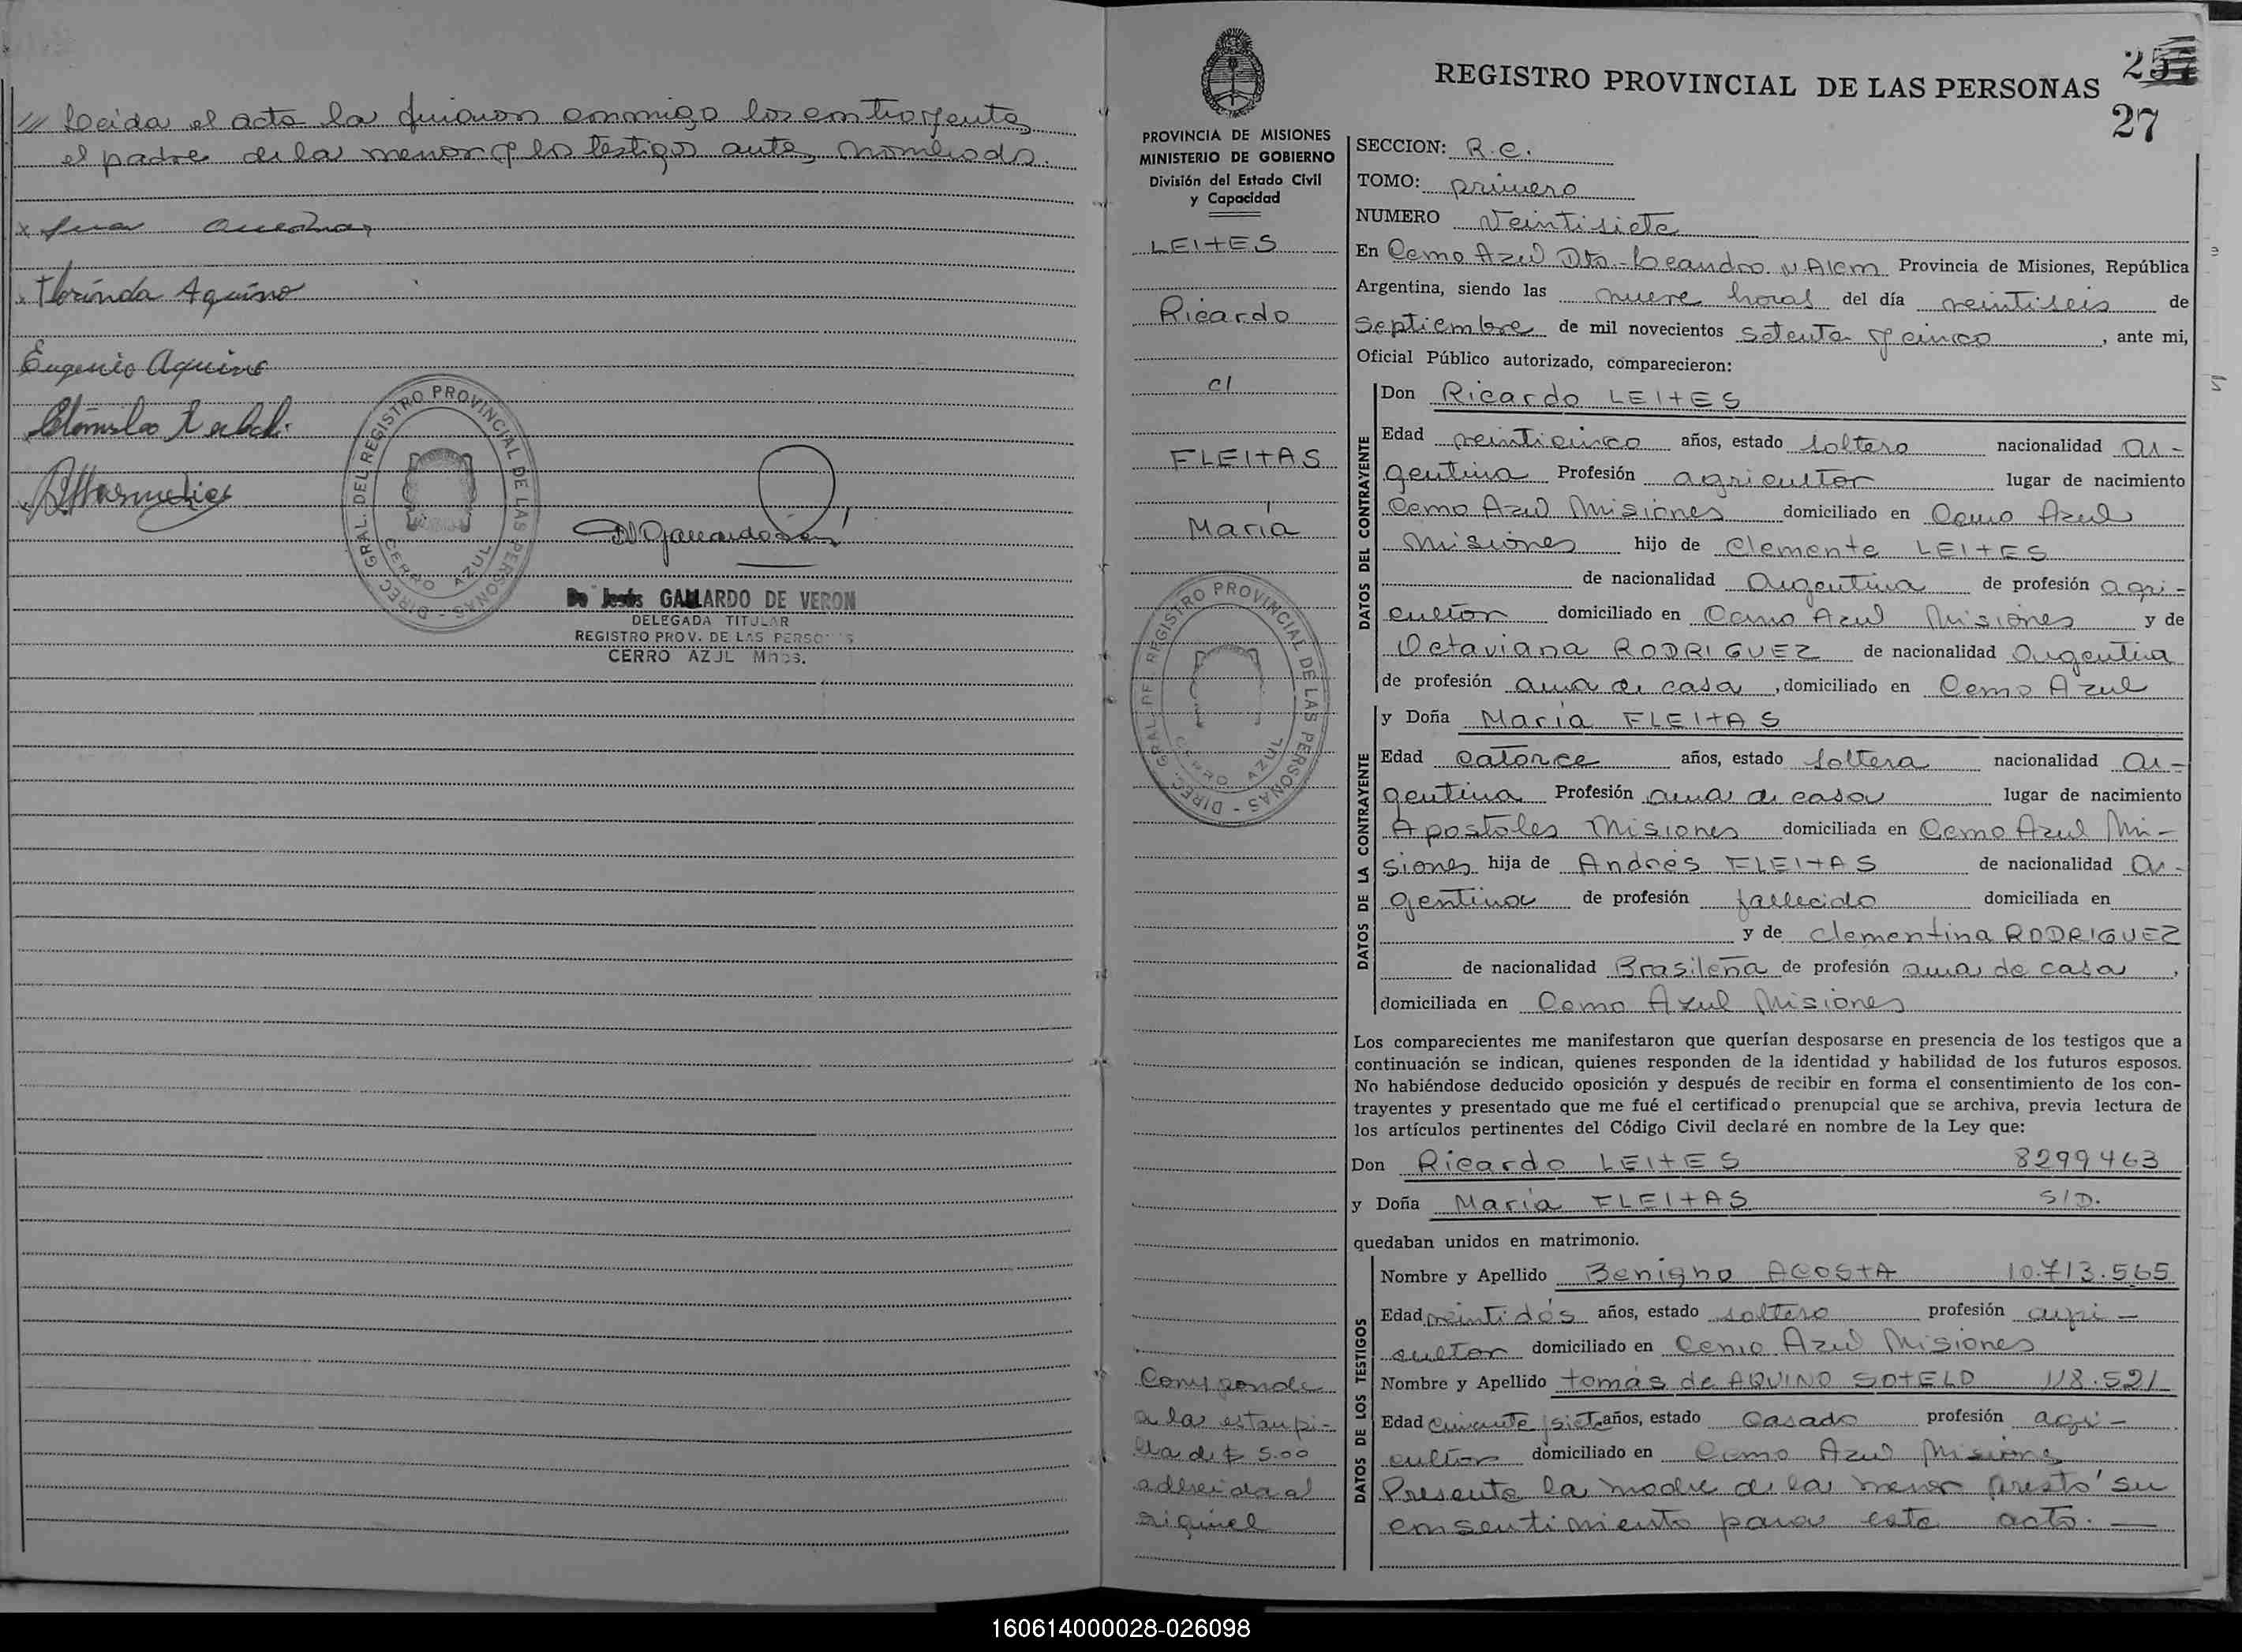 // Leida el acta la firman conmigo los contrayentes
el padre de la menor y los testigos antes nombrados.
Florinda Aquino
Eugenio Aquino
DIREC. GRAL. DEL REGISTRO PROVINCIAL DE LAS PERSONAS -
CERRO AZUL
Da Jesús GALLARDO DE VERON
DELEGADA TITULAR
REGISTRO PROV. DE LAS PERSONAS
CERRO AZUL Mnes.
PROVINCIA DE MISIONES
MINISTERIO DE GOBIERNO
División del Estado Civil
y Capacidad
LEITES
Ricardo
c/
FLEITAS
María
DIREC. GRAL. DEL REGISTRO PROVINCIAL DE LAS PERSONAS -
CERRO AZUL
Corresponde
a la estampi-
lla de $ 5.00
adherida al
REGISTRO PROVINCIAL DE LAS PERSONAS
27
SECCION: R.C.
TOMO: primero
NUMERO Veintisiete
En Cerro Azul Dto. Leandro N. Alem Provincia de Misiones, República
Argentina, siendo las nueve horas del día veintiseis de
Septiembre de mil novecientos setenta y cinco, ante mi,
Oficial Público autorizado, comparecieron:
DATOS DEL CONTRAYENTE
Don Ricardo LEITES
Edad veinticinco años, estado soltero nacionalidad ar-
gentina Profesión agricultor lugar de nacimiento
Cerro Azul Misiones domiciliado en Cerro Azul
Misiones hijo de Clemente LEITES
de nacionalidad Argentina de profesión agri-
cultor domiciliado en Cerro Azul Misiones y de
Octaviana RODRIGUEZ de nacionalidad Argentina
de profesión ama de casa, domiciliado en Cerro Azul
DATOS DE LA CONTRAYENTE
y Doña María FLEITAS
Edad catorce años, estado soltera nacionalidad Ar-
gentina Profesión ama de casa lugar de nacimiento
Apostoles Misiones domiciliada en Cerro Azul Mi-
siones hija de Andrés FLEITAS de nacionalidad Ar-
gentina de profesión fallecido domiciliada en
y de Clementina RODRIGUEZ
de nacionalidad Brasileña de profesión ama de casa,
domiciliada en Cerro Azul Misiones
Los comparecientes me manifestaron que querían desposarse en presencia de los testigos que a
continuación se indican, quienes responden de la identidad y habilidad de los futuros esposos.
No habiéndose deducido oposición y después de recibir en forma el consentimiento de los con-
trayentes y presentado que me fué el certificado prenupcial que se archiva, previa lectura de
los artículos pertinentes del Código Civil declaré en nombre de la Ley que:
Don Ricardo LEITES 8299463
y Doña María FLEITAS S/D.
quedaban unidos en matrimonio.
DATOS DE LOS TESTIGOS
Nombre y Apellido Benigno ACOSTA 10.713.565
Edad veintidós años, estado soltero profesión agri-
cultor domiciliado en Cerro Azul Misiones
Nombre y Apellido Tomás de AQUINO SOTELO 118.521
Edad cincuenta y siete años, estado Casado profesión agri-
cultor domiciliado en Cerro Azul Misiones
Presente la madre de la menor prestó su
consentimiento para este acto. —
160614000028-026098